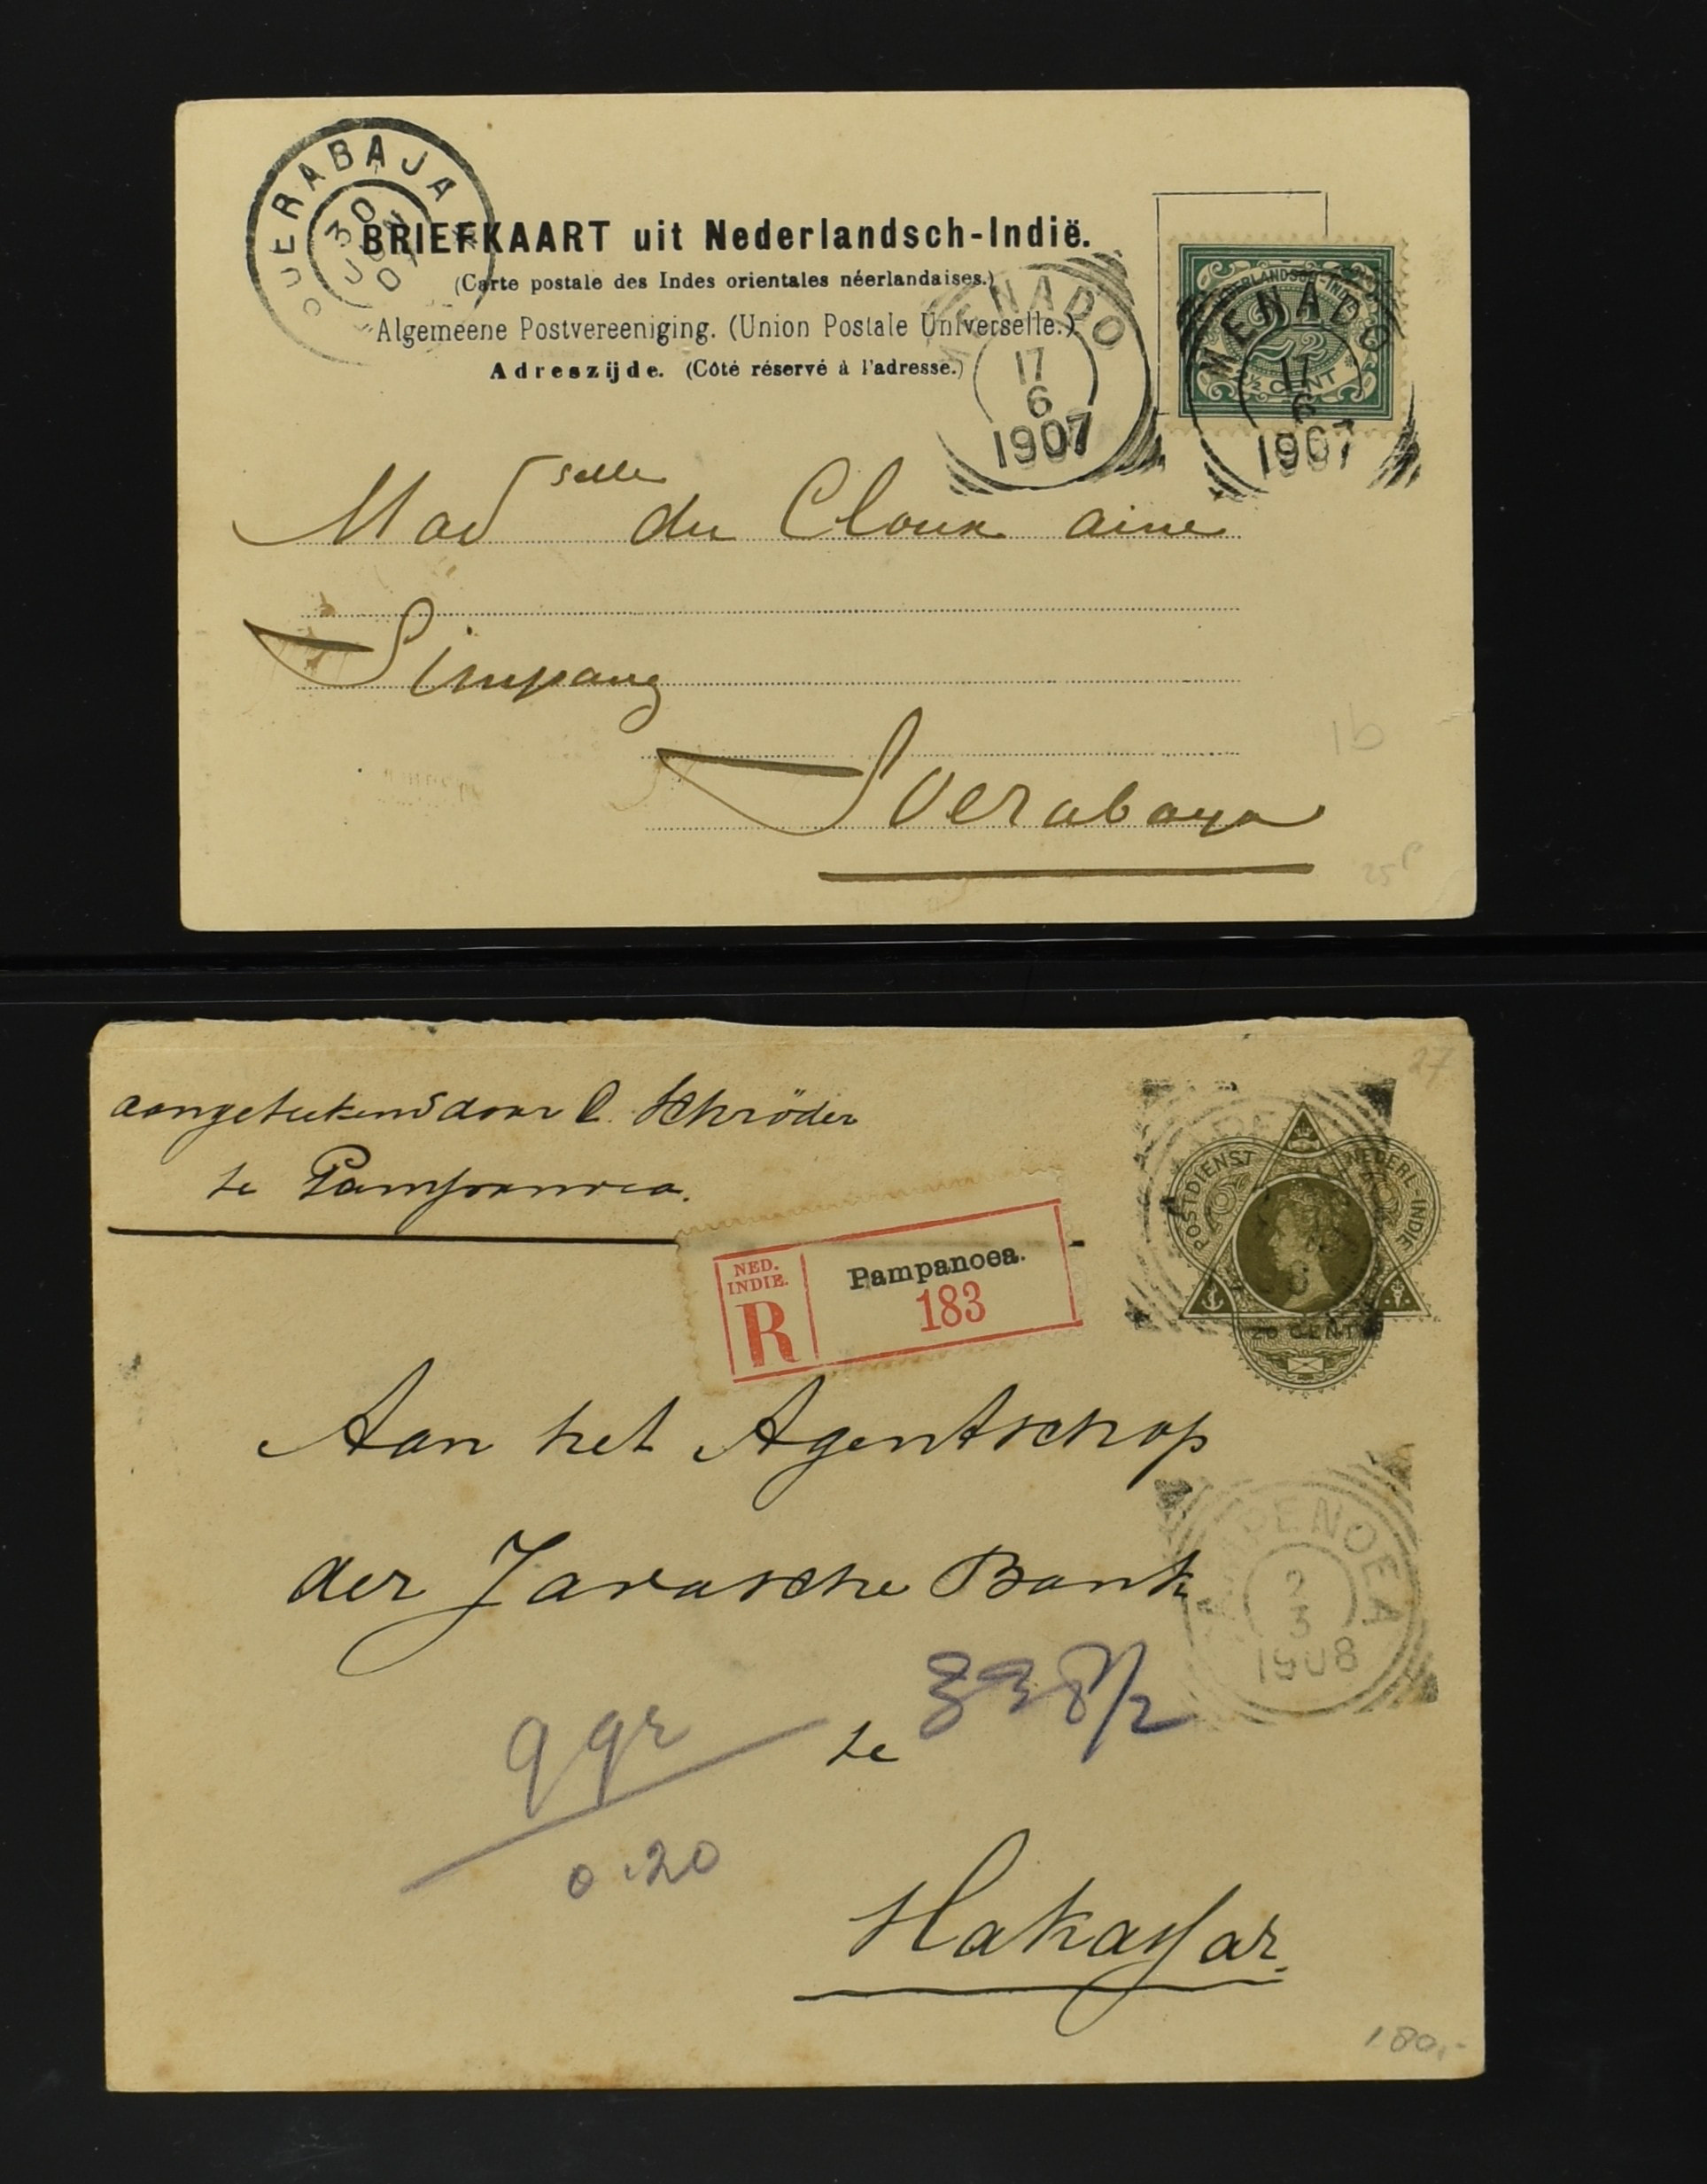 OERABAJA
30
07
BRIEFKAART uit Nederlandsch-Indië.
(Carte postale des Indes orientales néerlandaises.)
Algemeene Postvereeniging. (Union Postale Universelle.)
Adreszijde. (Côté réservé à l'adresse.)
MENADO
17
6
1907
NEDERLANDSCH-INDIE
2½
CENT
MENADO
17
6
1907
Madselle du Cloux aine
Simpang
Soerabaya
1b
25
27
aangeteekend door C. Schröder
te Pampanoea.
NED.
INDIE.
R
Pampanoea.
183
POSTDIENST NEDERL-INDIE
20 CENT
Aan het Agentschap
der Javasche Bank
AMPENOEA
2
3
1908
te 338/2
0.20
Makassar.
180,-